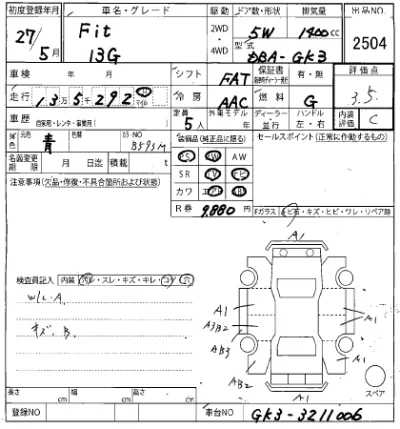 初度登録年月 車名・グレード 駆動 ドア数・形状 排気量 出品NO
27/5月 Fit 13G 2WD・4WD 5W 1400cc 2504
型式 DBA-GK3
車検 年 月 シフト FAT 保証書 有・無 評価点 3.5
走行 13万5千292 マイル 冷房 AAC 燃料 G 内装評価 C
車歴 自家用・レンタ・事業用( ) 定員 5人 外車モデル 年 ディーラー・並行 ハンドル 左・右
色 元色 青 色替 カラーNO B593M
装備品(純正品に限る) セールスポイント(正常に作動するもの)
PS AW
名義変更期限 月 日迄 積載 t SR TV ナビ
注意事項(欠品・修復・不具合箇所および状態) カワ エアB
R券 9,880円
Fガラス ヒビ有・キズ・ヒビ・ワレ・リペア跡
検査員記入 内装 汚レ・スレ・キズ・キレ・コゲ・穴
W/L・A
キズ・B
A1
A1 A1
A3B2
A1
AB3
A1
AB2
A1
スペア
長さ cm 幅 cm 高さ cm
登録NO 車台NO GK3-3211006